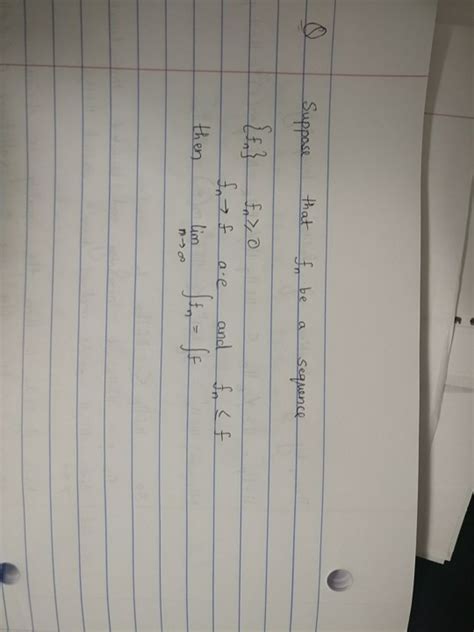 Q Suppose that fn be a sequence
{fn} fn ≥ 0
fn → f a.e and fn ≤ f
then lim n→∞ ∫fn = ∫f